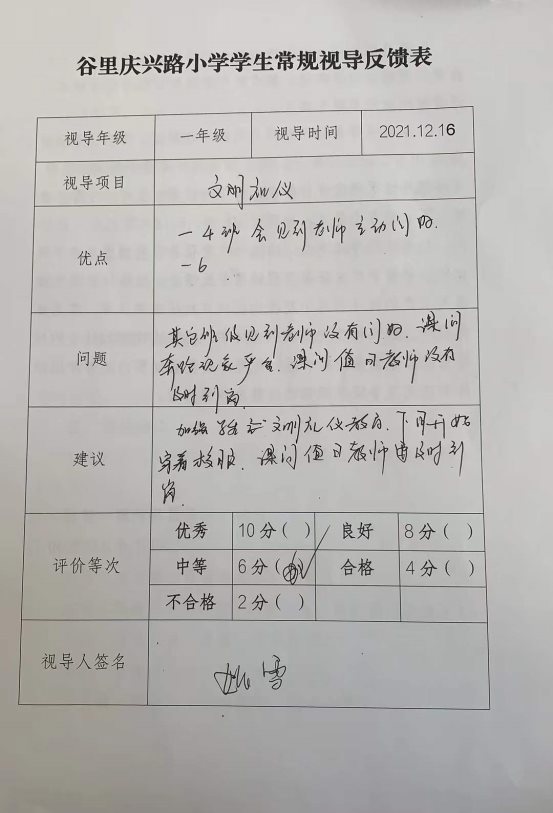 谷里庆兴路小学学生常规视导反馈表
视导年级 一年级 视导时间 2021.12.16
视导项目 文明礼仪
优点 一4班会见到老师主动问好.
一6
问题 其它班级见到老师没有问好.课间
奔跑现象严重.课间值日教师没有
及时到岗
建议 加强 文明礼仪教育.下周开始
穿着校服.课间值日教师需及时到
岗.
评价等次 优秀 10分( ) 良好 8分( )
中等 6分( ) 合格 4分( )
不合格 2分( )
视导人签名 姚雪